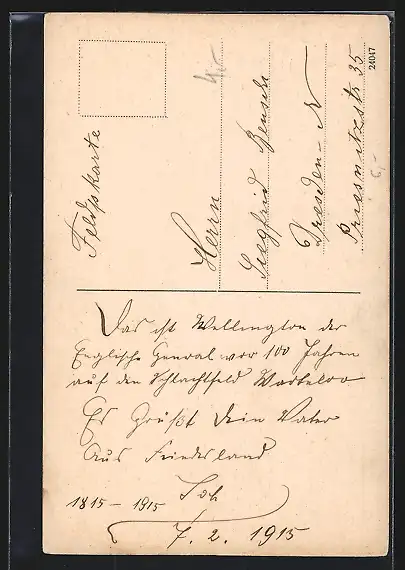 Feldpskarte
Herrn
Siegfried Bensch
Dresden-N
Priesnitzstr 35
24047
Das ist Wellington der
Englische General vor 100 Jahren
auf den Schlachtfeld Waterloo
Es Grüßt Dein Vater
Aus Feindesland
1815 – 1915
7. 2. 1915